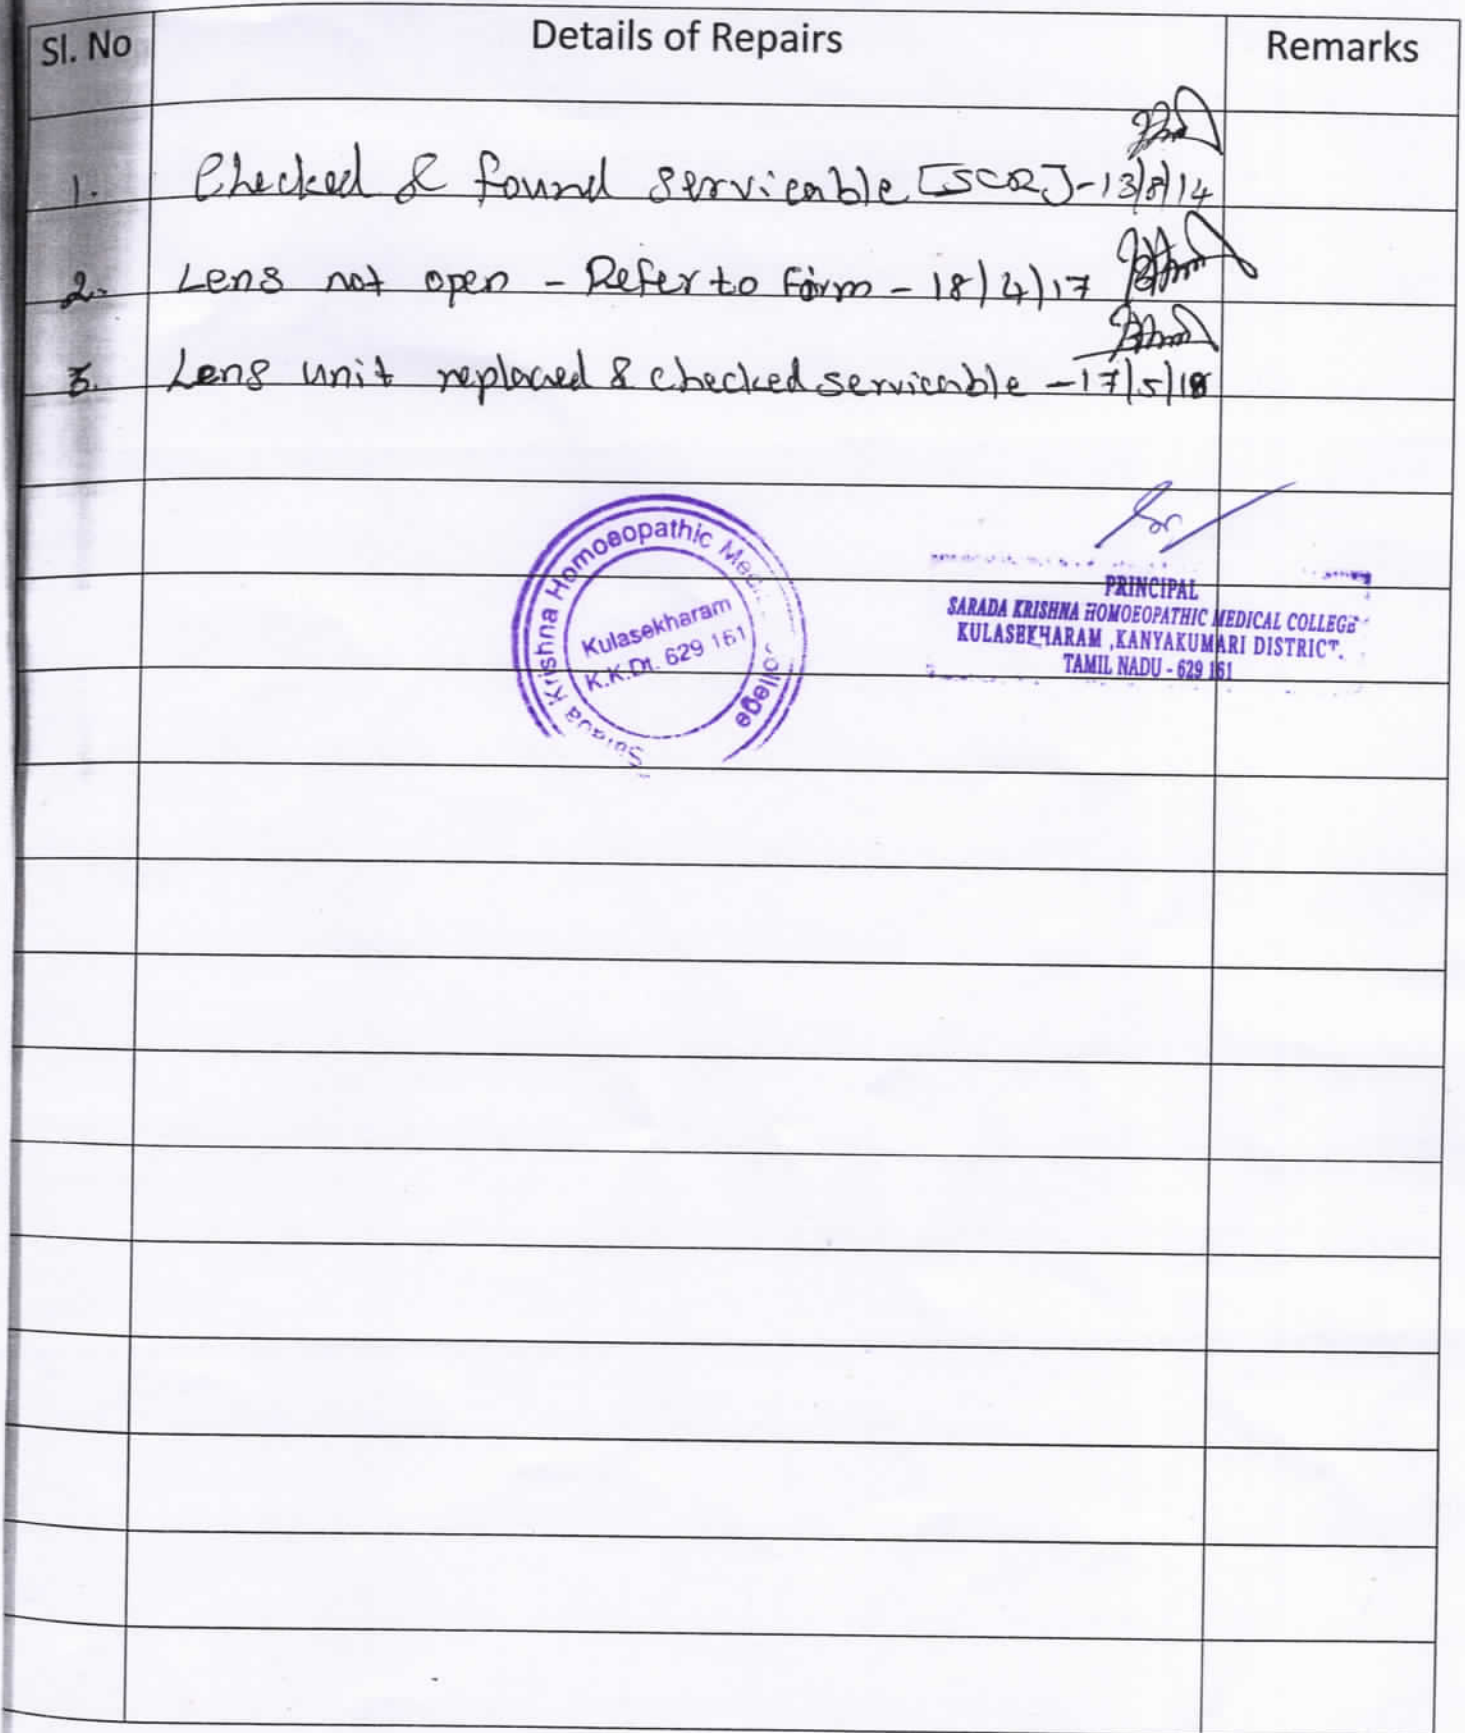 Sl. No Details of Repairs Remarks
1. Checked & found servicable [SCR] - 13/8/14
2. Lens not open - Refer to firm - 18/4/17
3. Lens unit replaced & checked servicable - 17/5/18
Sarada Krishna Homoeopathic Medical College
Kulasekharam
K.K.Dt. 629 161
PRINCIPAL
SARADA KRISHNA HOMOEOPATHIC MEDICAL COLLEGE
KULASEKHARAM ,KANYAKUMARI DISTRICT.
TAMIL NADU - 629 161